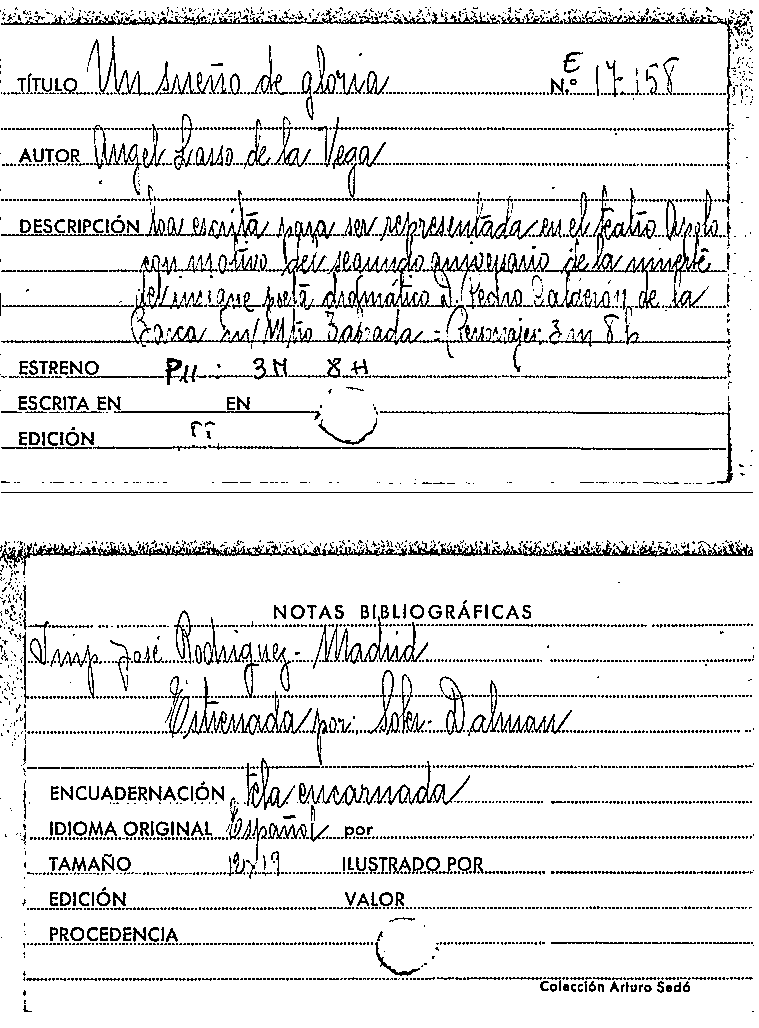 TÍTULO Un sueño de gloria
E
N.º 17-158
AUTOR Angel Lasso de la Vega
DESCRIPCIÓN Loa escrita para ser representada en el teatro Apolo
con motivo del segundo aniversario de la muerte
del insigne poeta dramático D. Pedro Calderón de la
Barca Mtro Zabada - Personajes: 3 m 8 h
ESTRENO 3 M 8 H
ESCRITA EN EN
EDICIÓN
NOTAS BIBLIOGRÁFICAS
Imp José Rodriguez - Madrid
Estrenada por: Soler - Dalmau
ENCUADERNACIÓN tela encarnada
IDIOMA ORIGINAL Español por
TAMAÑO 12x19 ILUSTRADO POR
EDICIÓN VALOR
PROCEDENCIA
Colección Arturo Sedó